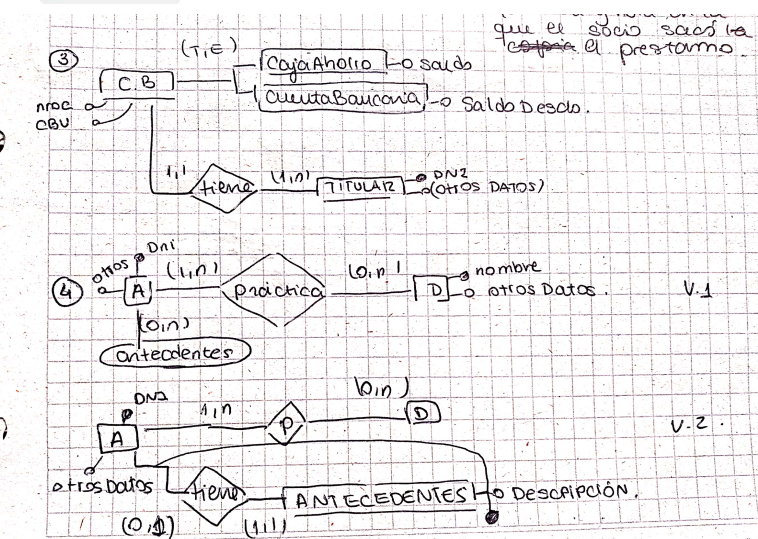 que el socio sacó la
copia el prestamo.
3
(T,E)
CajaAhorro
saldo
C.B
CuentaBancaria
Saldo Desclo.
nroc
CBU
1,1
tiene
(1,n)
TITULAR
DNI
(otros DATOS)
4
otros
Dni
A
(1,n)
práctica
(0,n)
D
nombre
otros Datos.
V.1
(0,n)
antecedentes
DNI
A
1,n
P
(0,n)
D
V.2.
otros Datos
tiene
ANTECEDENTES
DESCRIPCIÓN.
(1,1)